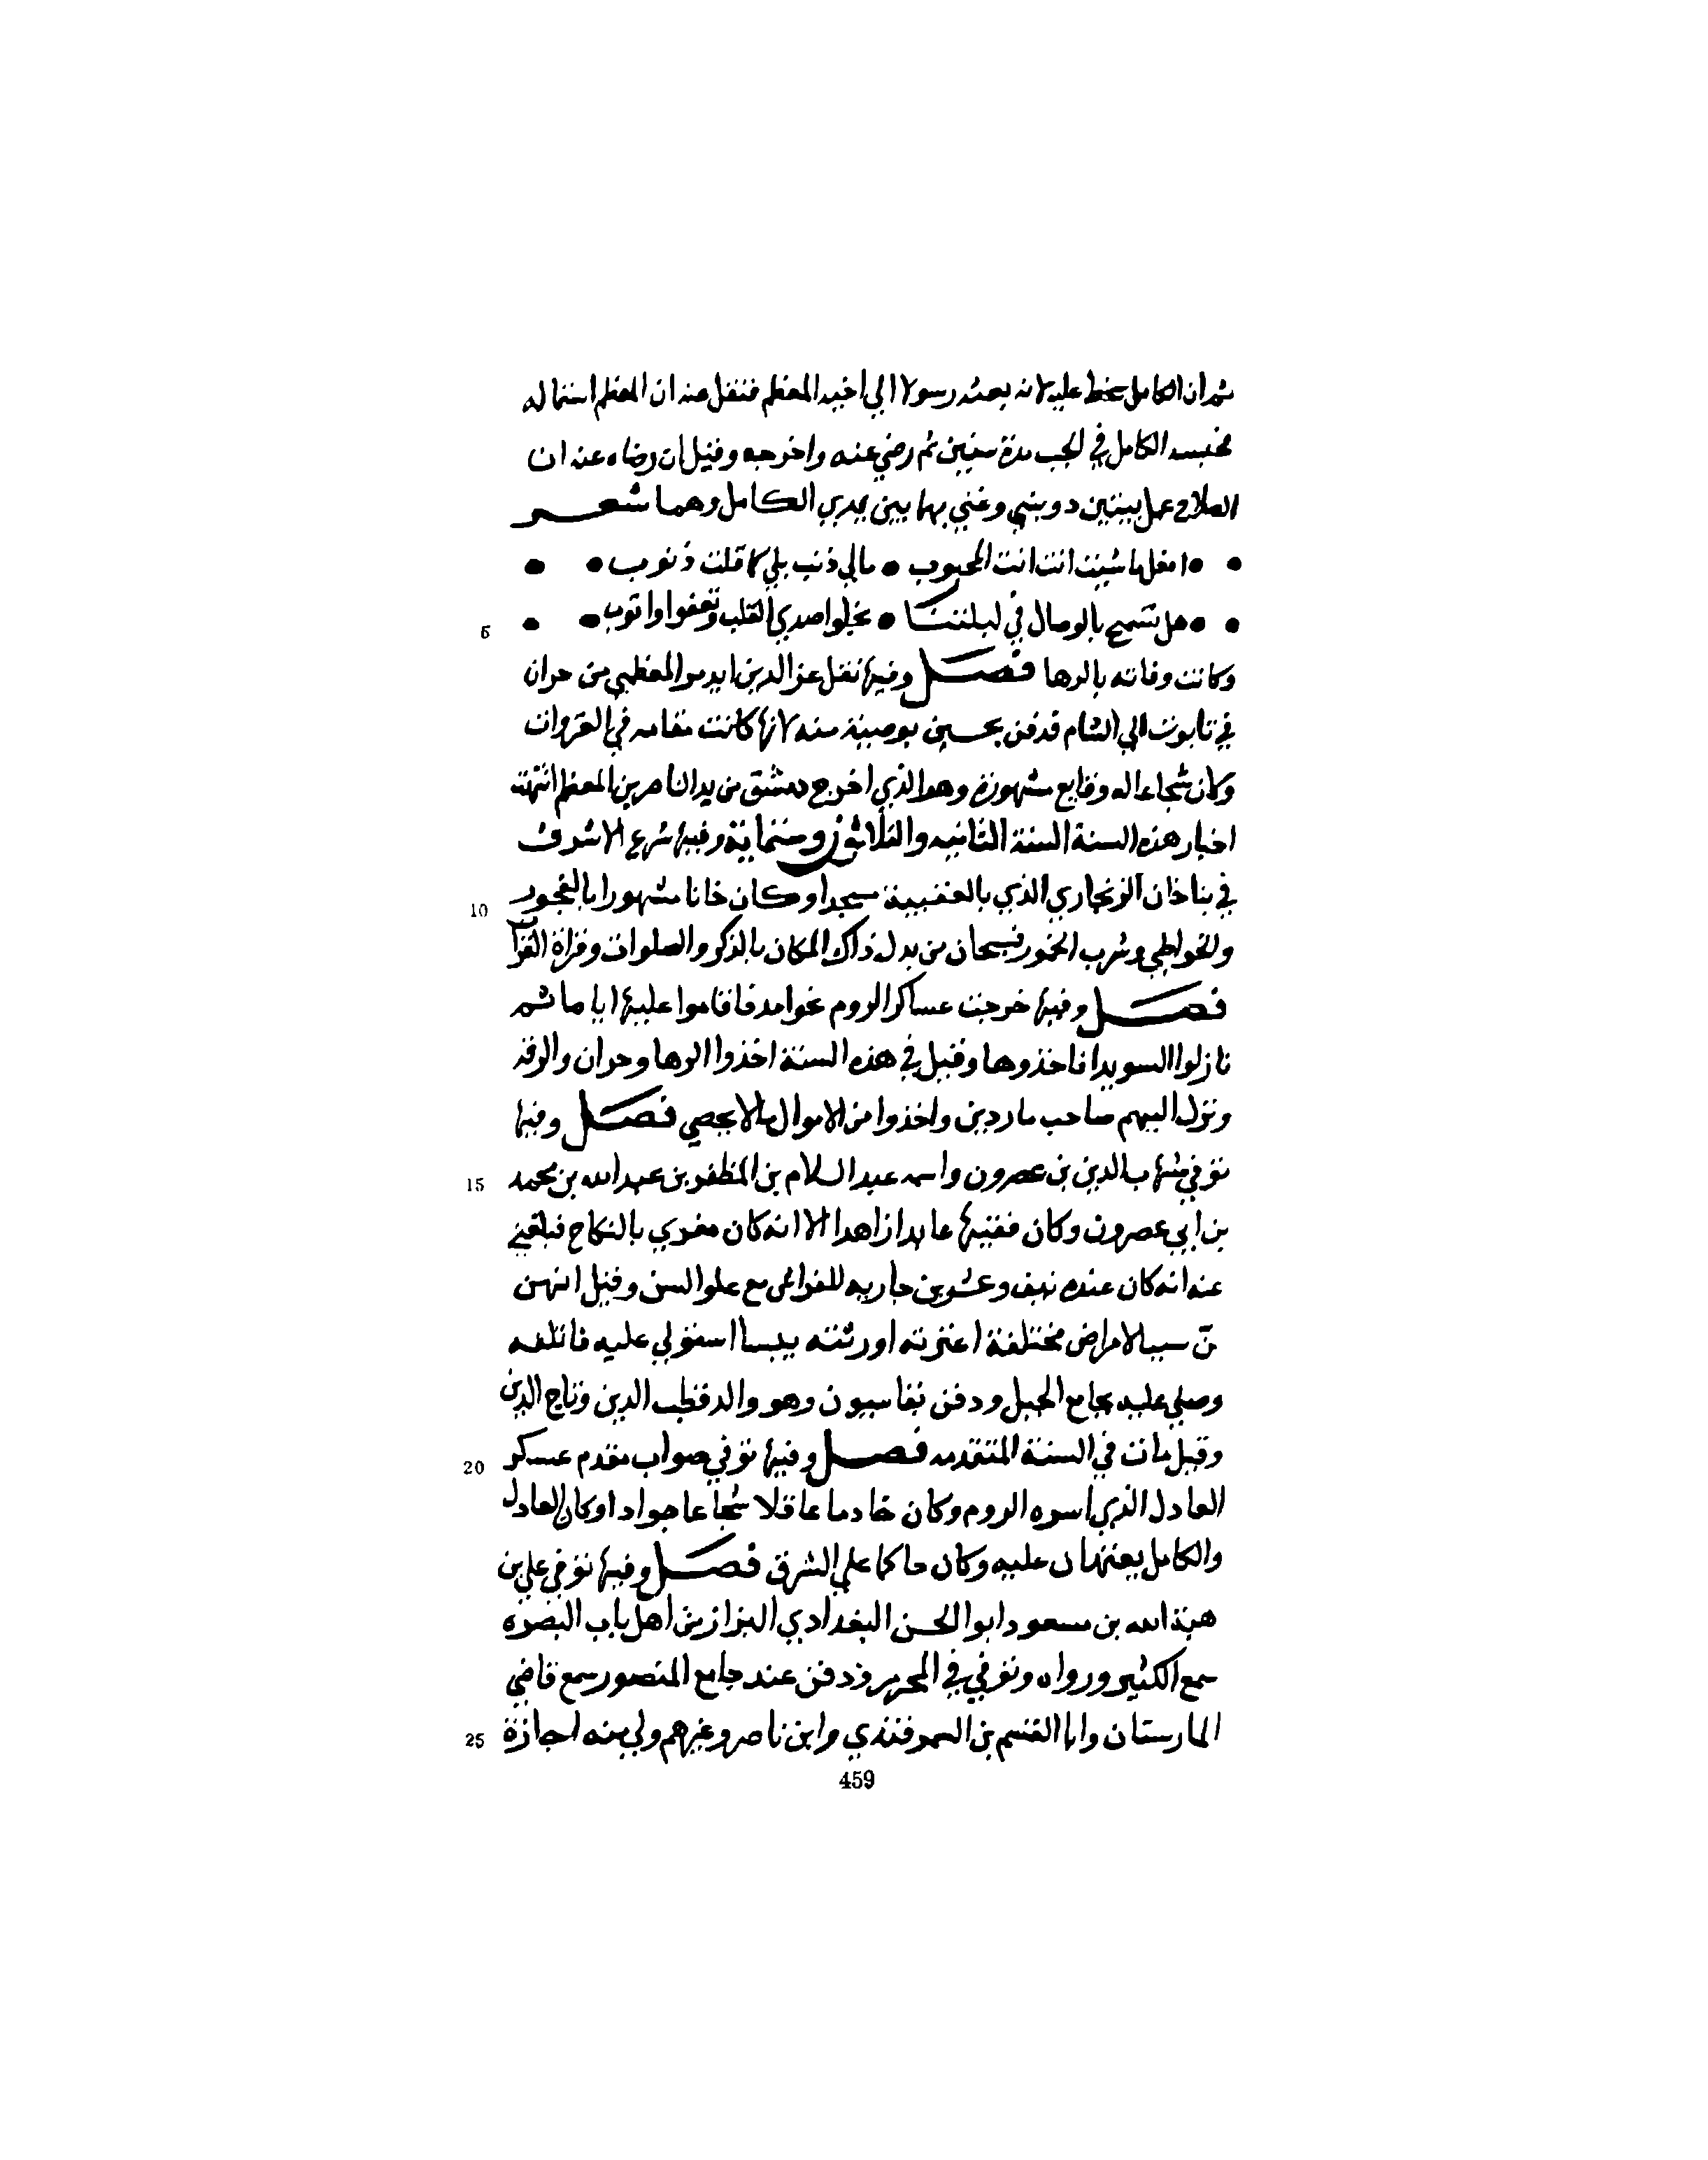 ثم ان الكامل سخط عليه لانه بعثه رسولا الي اخيه المعظم فنقل عنه ان المعظم استماله
فحبسه الكامل في الجب مدة سنين ثم رضي عنه واخرجه وقيل ان رضاه عنه ان
الصلاح عمل بيتين دوبيتي وغني بهما بين يدي الكامل وهما شعر
● ● افعل ما شيت انت انت المحبوب ● مالي ذنب بلي كما قلت ذنوب ● ●
● ● هل تسمح بالوصال في ليلتنا ● تجلوا صدي القلب وتعفوا واتوب ● ●
5
وكانت وفاته بالرها فصل وفيها نقل عز الدين ايدمر المعظمي من حران
في تابوت الي الشام فدفن بوصية منه لانها كانت مقامه في الغزوات
وكان شجاعا له وقايع مشهورة وهو الذي اخرج دمشق من يد الناصر بن المعظم انتهت
اخبار هذه السنة السنة الثانيه والثلاثون وستماية وفيها شرع الاشرف
في بنا خان الزنجاري الذي بالعقيبية مسجدا وكان خانا مشهورا بالفجور
10
والخواطي وشرب الخمور فسبحان من بدل ذاك المكان بالذكر والصلوات وقراة القران
فصل وفيها خرجت عساكر الروم نحو امد فاقاموا عليها اياما ثم
نازلوا السويدا فاخذوها وقيل في هذه السنة اخذوا الرها وحران والرقه
ونزل اليهم صاحب ماردين واخذوا من الاموال مالا يحصي فصل وفيها
توفي شهاب الدين بن عصرون واسمه عبد السلام بن المظفر بن عبد الله بن محمد
15
بن ابي عصرون وكان فقيها عابدا زاهدا الا انه كان مغري بالنكاح فبلغني
عنه انه كان عنده نيف وعشرين جاريه للفراش مع علو السن وقيل انهن
كن سببا لامراض مختلفة اعترته اورثته يبسا استولي عليه فاتلفه
وصلي عليه بجامع الجبل ودفن بقاسيون وهو والد قطب الدين وتاج الدين
وقيل مات في السنة المتقدمه فصل وفيها توفي صواب مقدم عسكر
20
العادل الذي اسره الروم وكان خادما عاقلا شجاعا جوادا وكان العادل
والكامل يعتمدان عليه وكان حاكما علي الشرق فصل وفيها توفي علي بن
هبة الله بن مسعود ابو الحسن البغدادي البزاز من اهل باب البصره
سمع الكثير ورواه وتوفي في المحرم ودفن عند جامع المنصور سمع قاضي
المارستان وابا القسم بن السمرقندي وابن ناصر وغيرهم ولي منه اجازة
25
459